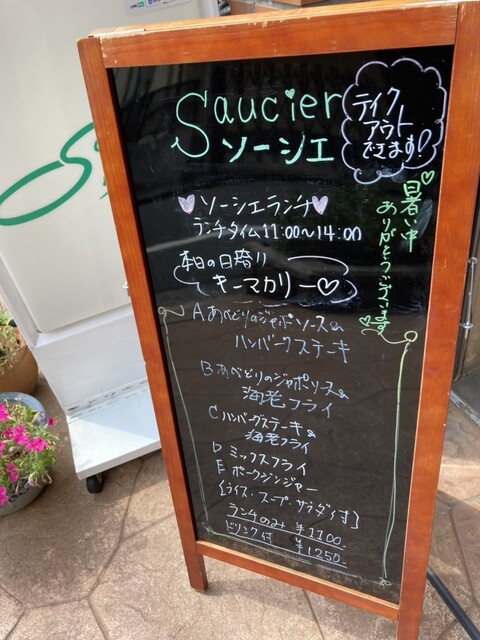 Saucier
ソーシエ
テイク
アウト
できます!
暑い中
ありがとうございます
ソーシエランチ
ランチタイム 11:00〜14:00
本日の日替り
キーマカリー
A あべどりのジャポソース&
ハンバーグステーキ
B あべどりのジャポソース&
海老フライ
C ハンバーグステーキ&
海老フライ
D ミックスフライ
E ポークジンジャー
(ライス・スープ・サラダ付)
ランチのみ ¥1100.
ドリンク付 ¥1250.